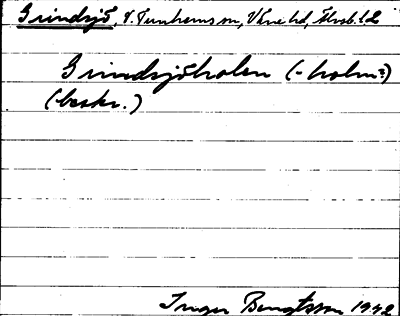 Grindsjö, V. Tunhems sn, Väne hd, Älvsb. l.
Grindsjöholen (-holm?)
(beskr.)
Inger Bengtsson 1942